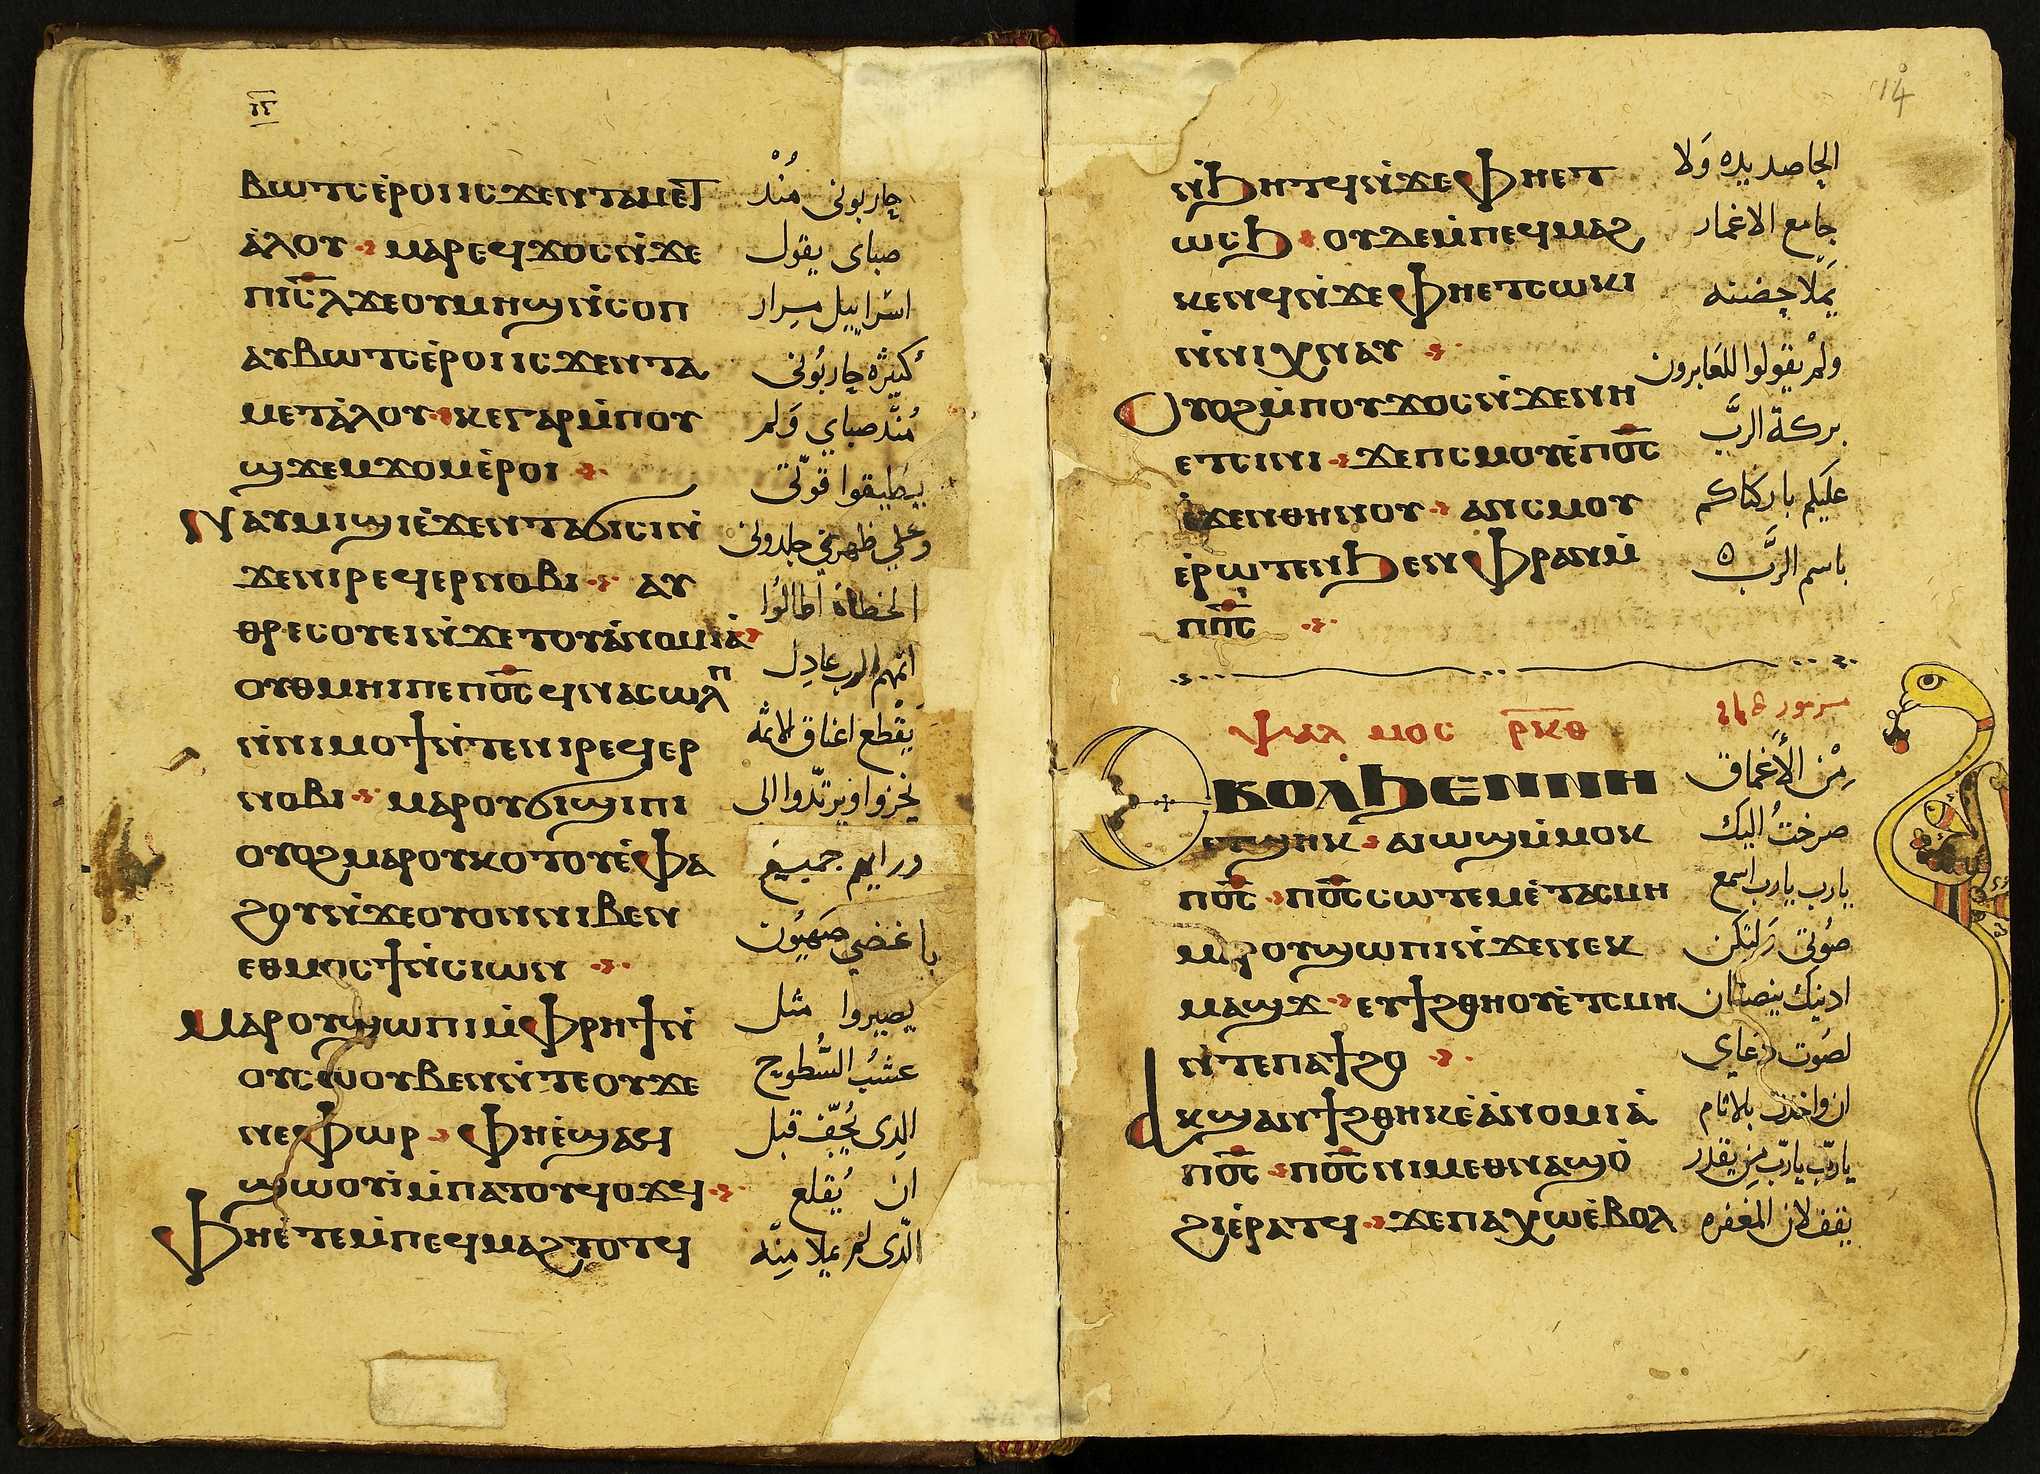 ⲃⲱⲧⲥⲉ̇ⲣⲟⲓⲓⲥϫⲉⲛⲧⲁⲙⲉⲧ
ⲁ̇ⲗⲟⲩ ⲙⲁⲣⲉϥϫⲟⲥⲛ̇ϫⲉ
ⲡⲓⲥ̅ⲗϫⲉⲟⲩⲙⲏϣⲛ̇ⲥⲟⲡ
ⲁⲩⲃⲱⲧⲥⲉ̇ⲣⲟⲓⲓⲥϫⲉⲛⲧⲁ
ⲙⲉⲧⲁ̇ⲗⲟⲩ ⲕⲉⲅⲁⲣⲙ̇ⲡⲟⲩ
ϣϫⲉⲙϫⲟⲙⲉ̇ⲣⲟⲓ
ⲛⲁⲩⲙⲓϣⲓⲉ̇ϫⲉⲛⲧⲁϭⲓⲥⲓⲛ̇
ϫⲉⲛⲓⲣⲉϥⲉⲣⲛⲟⲃⲓ ⲁⲩ
ⲑⲣⲉⲥⲟⲩⲉⲓⲛ̇ϫⲉⲧⲟⲩⲁ̇ⲛⲟⲙⲓⲁ̇
ⲟⲩⲑⲙⲏⲓⲡⲉⲡⲟ̅ⲥ̅ϥⲛⲁⲥⲱⲗⲡ
ⲛ̇ⲛⲓⲙⲟϯⲛ̇ⲧⲉⲛⲓⲣⲉϥⲉⲣ
ⲛⲟⲃⲓ ⲙⲁⲣⲟⲩϭⲓϣⲓⲡⲓ
ⲟⲩⲟϩⲙⲁⲣⲟⲩⲕⲟⲧⲟⲩⲉ̇ⲫⲁ
ϩⲟⲩⲛ̇ϫⲉⲟⲩⲟⲛⲛⲓⲃⲉⲛ
ⲉⲑⲙⲟⲥϯⲛ̇ⲥⲓⲱⲛ
ⲙⲁⲣⲟⲩϣⲱⲡⲓⲙ̇ⲫⲣⲏϯⲛ̇
ⲟⲩⲥⲱⲟⲩⲃⲉⲛⲛ̇ⲧⲉⲟⲩϫⲉ
ⲛⲉⲫⲱⲣ ⲫⲏⲉ̇ϣⲁϥ
ϣⲱⲟⲩⲓ̇ⲙ̇ⲡⲁⲧⲟⲩϥⲟϫϥ
ⲫⲏⲉ̇ⲧⲉⲙ̇ⲡⲉϥⲙⲁϩⲧⲟⲧϥ
حاربوني مُنْد
صباى يقول
اسراييل مرار
كثيره حاربُوني
مُندُ صباي وَلم
يطيقوا قوّتي
وعلي ظهري جلدوني
الخطاة اطالُوا
اتمهم الرب عادِل
يَقْطع اعناق الاثمه
يخزوا ويرتدّوا الى
ورايهم جميع
باغضي صَهيُون
يصيروا مثل
عشبُ السُّطوح
الدِى يُجفّ قبل
ان يُقلع
الدّى لم يملا مِنْه
14
ⲛ̇ϧⲏⲧϥⲛ̇ϫⲉⲫⲏⲉⲧ
ⲱⲥϧ ⲟⲩⲇⲉⲙ̇ⲡⲉϥⲙⲁϩ
ⲕⲉⲛϥⲛ̇ϫⲉⲫⲏⲉⲧⲥⲱⲕⲓ
ⲛ̇ⲛⲓⲭⲛⲁⲩ
ⲟⲩⲟϩⲙ̇ⲡⲟⲩϫⲟⲥⲛ̇ϫⲉⲛⲏ
ⲉⲧⲥⲓⲛⲓ ϫⲉⲡⲥⲙⲟⲩⲉ̇ⲡⲟ̅ⲥ̅
ⲉ̇ϫⲉⲛⲑⲏⲛⲟⲩ ⲁⲛⲥⲙⲟⲩ
ⲉ̇ⲣⲱⲧⲉⲛϧⲉⲛⲫⲣⲁⲛⲙ̇
ⲡⲟ̅ⲥ̅
الحاصد يده وَلا
جامع الاغمار
يَملا حِضنه
ولمْ يقولوا للعَابرون
بركة الربَّ
عليكم باركناكم
باسم الربَّ
ⲯⲁⲗⲙⲟⲥ ⲣ̅ⲕ̅ⲑ̅
ⲉⲃⲟⲗϧⲉⲛⲛⲏ
ⲉⲧϣⲏⲕ ⲁⲓⲱϣⲙ̇ⲙⲟⲕ
ⲡⲟ̅ⲥ̅ ⲡⲟ̅ⲥ̅ⲥⲱⲧⲉⲙⲉ̇ⲧⲁⲥⲙⲏ
ⲙⲁⲣⲟⲩϣⲱⲡⲓⲛ̇ϫⲉⲛⲉⲕ
ⲙⲁϣϫ ⲉⲩϯϩⲑⲏⲟⲩⲉ̇ⲧⲥⲙⲏ
ⲛ̇ⲧⲉⲡⲁϯϩⲟ
ⲁⲕϣⲁⲛϯϩⲑⲏⲕⲉ̇ⲁ̇ⲛⲟⲙⲓⲁ̇
ⲡⲟ̅ⲥ̅ ⲡⲟ̅ⲥ̅ⲛⲓⲙⲉⲑⲛⲁϣⲟ̇
ϩⲓⲉ̇ⲣⲁⲧϥ ϫⲉⲡⲁⲭⲱⲉ̇ⲃⲟⲗ
مزمور
مِنْ الأعْماق
صرختُ اليك
يارب يارب اسمع
صُوتي وَلتكن
ادنيك ينصتان
لصَوت دعاي
ان واخدت بالاثام
يارّب يارّب مِن يقدر
يقف لان المغفره